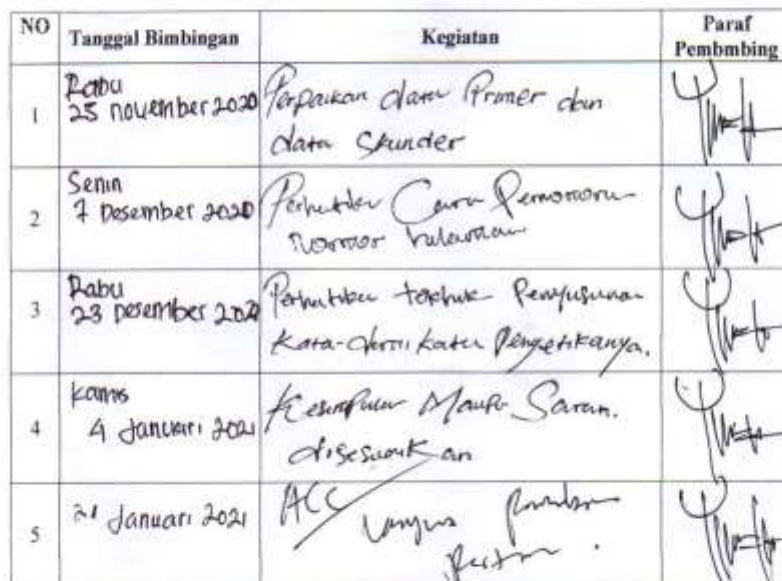 NO Tanggal Bimbingan Kegiatan Paraf
Pembmbing
1 Rabu
25 november 2020 Perpaikan data Primer dan
data Skunder
2 Senin
7 Desember 2020 Perhatikan Cara Penomoran
nomor halaman
3 Rabu
23 Desember 2020 Perhatikan tekhnik Penyusunan
Kata-demi kata Pengetikanya.
4 Kamis
4 Januari 2021 Kesimpulan Maupu Saran.
disesuaikan
5 21 Januari 2021 ACC